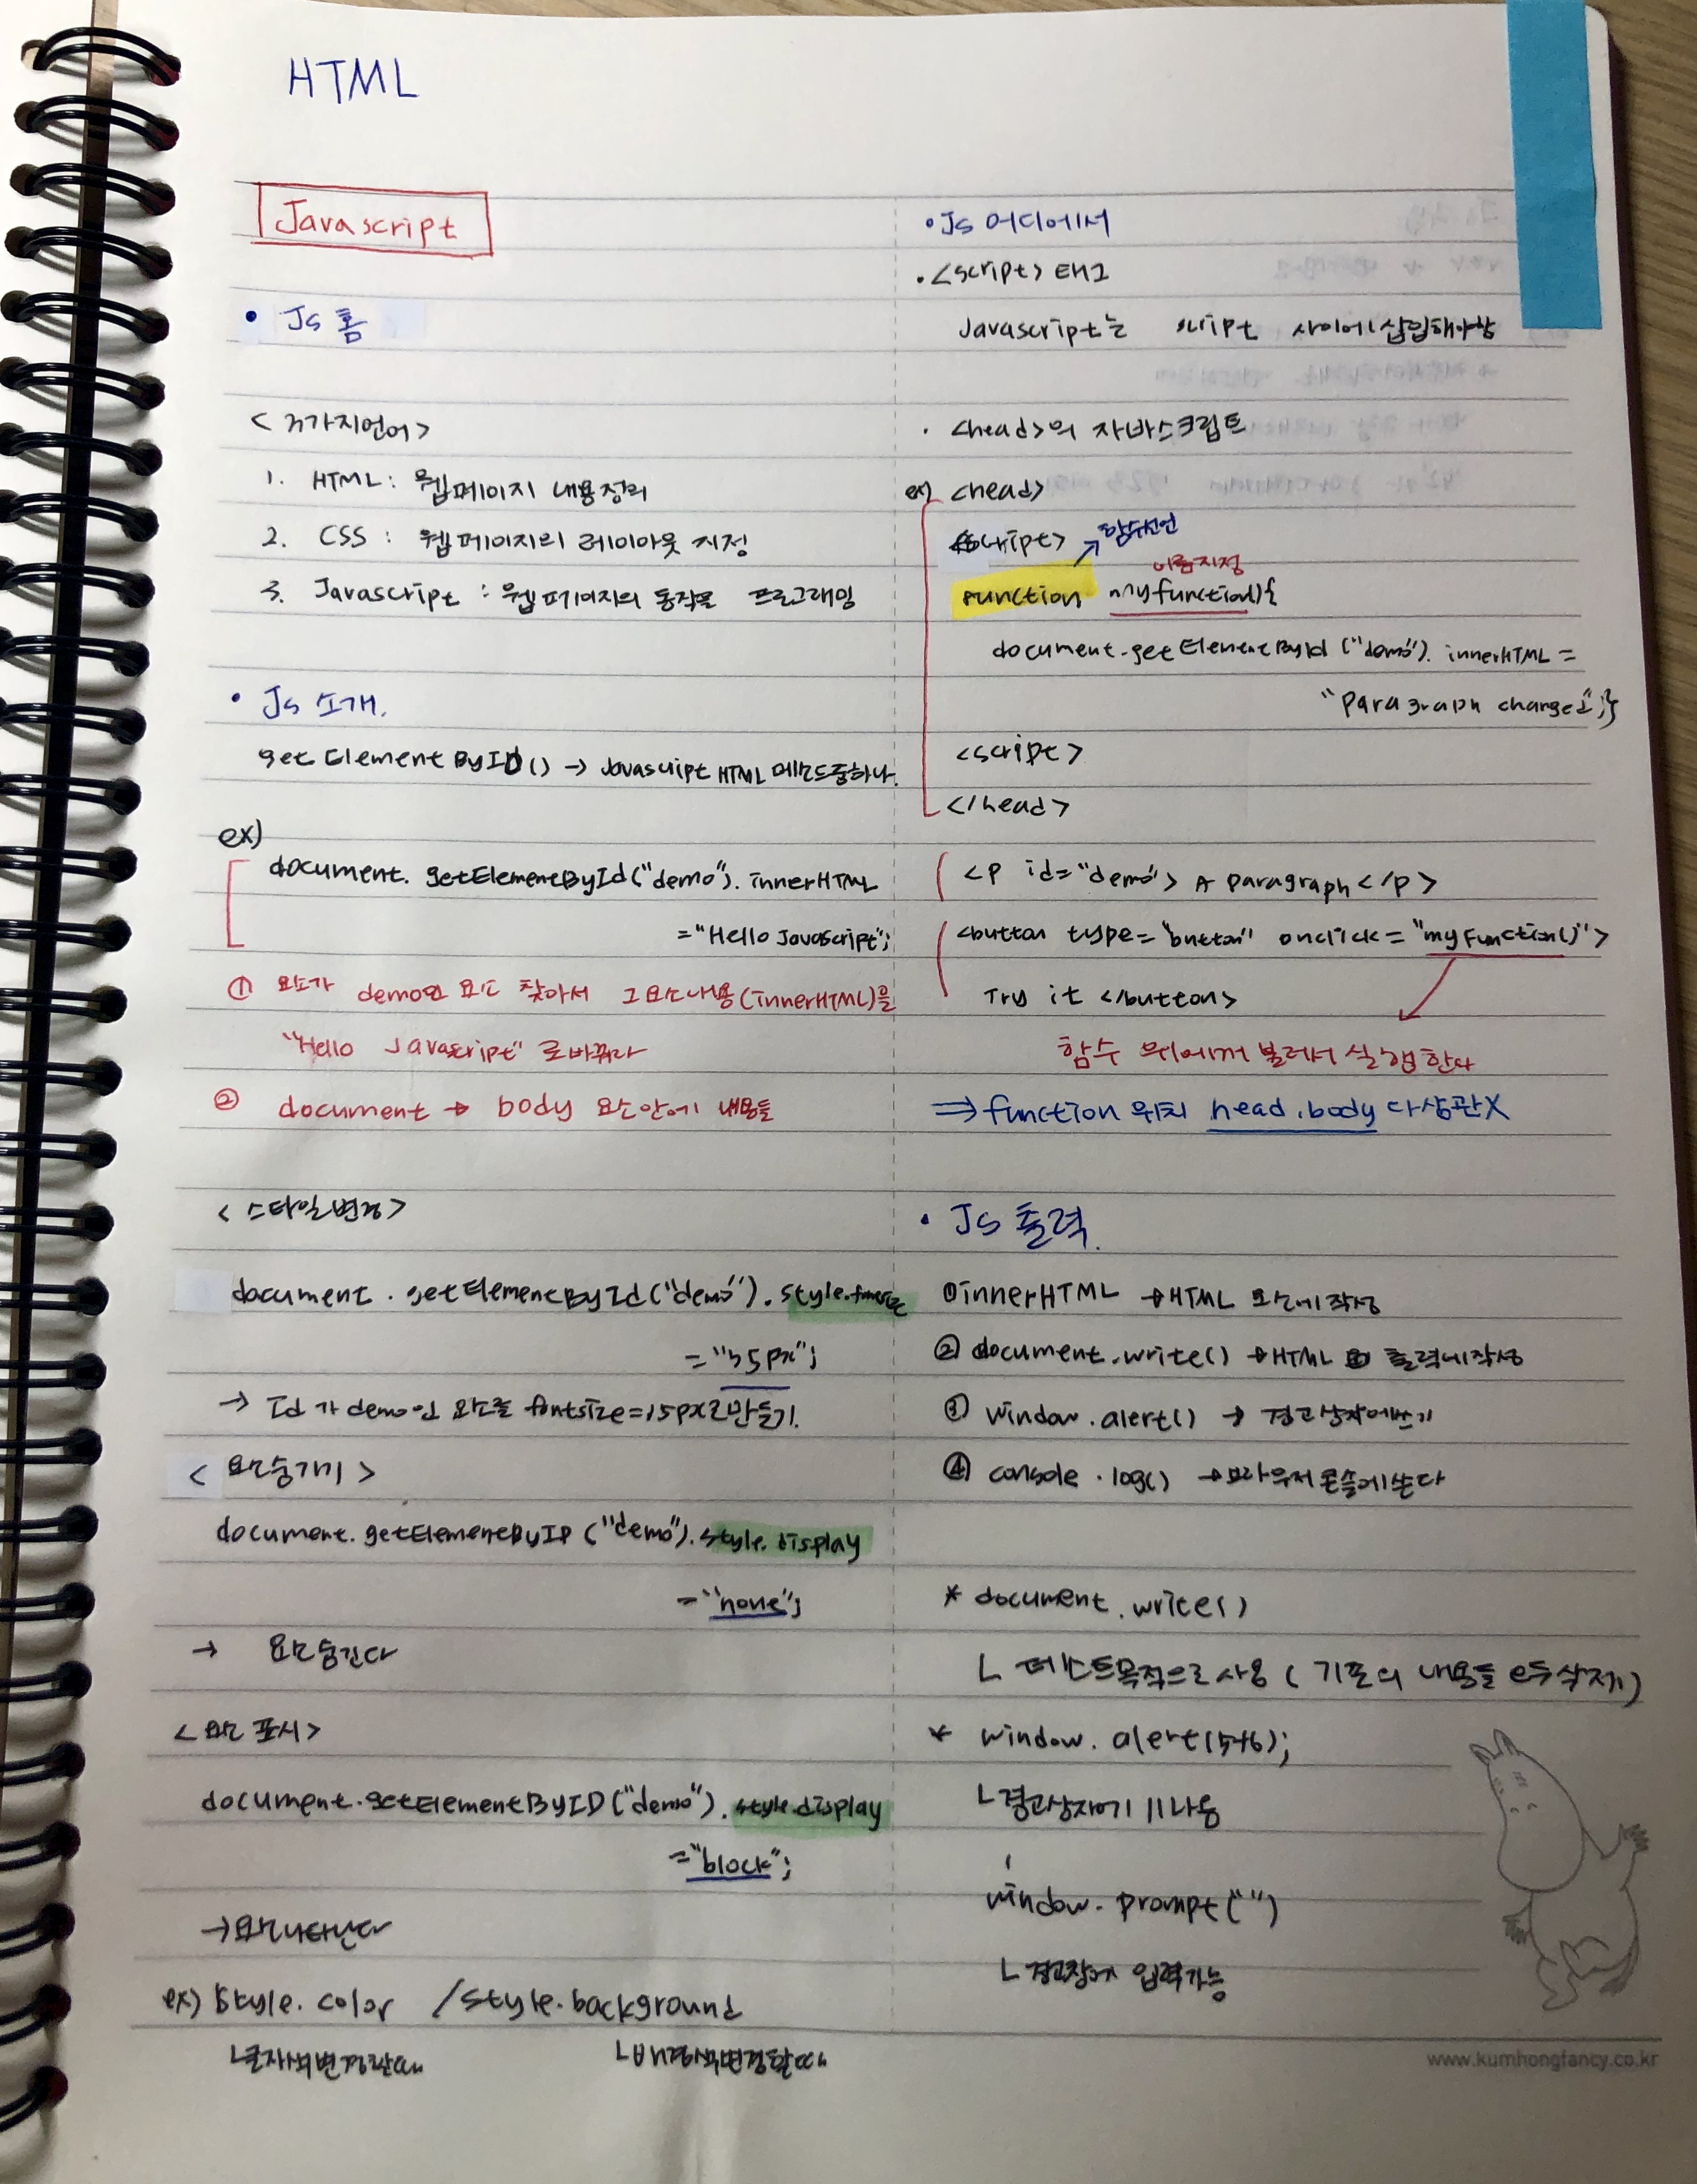 HTML
Javascript
• Js 홈
<3가지언어>
1. HTML : 웹페이지 내용정의
2. CSS : 웹페이지의 레이아웃 지정
3. Javascript : 웹페이지의 동작을 프로그래밍
• Js 소개.
getElementByID() → Javascript HTML 메소드중하나.
ex)
document. getElementById("demo"). innerHTML
="Hello Javascript";
① 요소가 demo인 요소 찾아서 그요소내용(innerHTML)을
"Hello Javascript" 로바꿔라
② document → body 요소안에 내용들
<스타일변경>
document . getElementById("demo"). style.fontsize
="35px";
→ Id가 demo인 요소를 fontsize=15px로만들기.
<요소숨기기>
document.getElementByID ("demo").style.display
="none";
→ 요소숨긴다
<요소 표시>
document.getElementByID("demo").style.display
="block";
→요소나타난다
ex) style.color /style.background
└글자색변경할때 └배경색변경할때
•Js 어디에서
•<script> 태그
Javascript는 script 사이에 삽입해야함
• <head>의 자바스크립트
ex) <head>
<script> 함수선언
이름지정
function myfunction(){
document.getElementById ("demo"). innerHTML =
"Paragraph changed";}
<script>
</head>
<p id="demo"> A paragraph</p>
<button type="button" onclick="myFunction()">
Try it </button>
함수 위에꺼 불러서 실행한다
⇒function 위치 head.body 다상관X
• Js 출력.
①innerHTML →HTML 요소에작성
② document.write() →HTML 출력에작성
③ window.alert() → 경고상자에쓰기
④ console .log() →브라우저콘솔에쓴다
* document.write()
└ 테스트목적으로 사용 ( 기존의 내용들 모두삭제)
* window. alert(5+6);
└경고상자에 11나옴
window. prompt("")
└경고창에 입력가능
www.kumhongfancy.co.kr